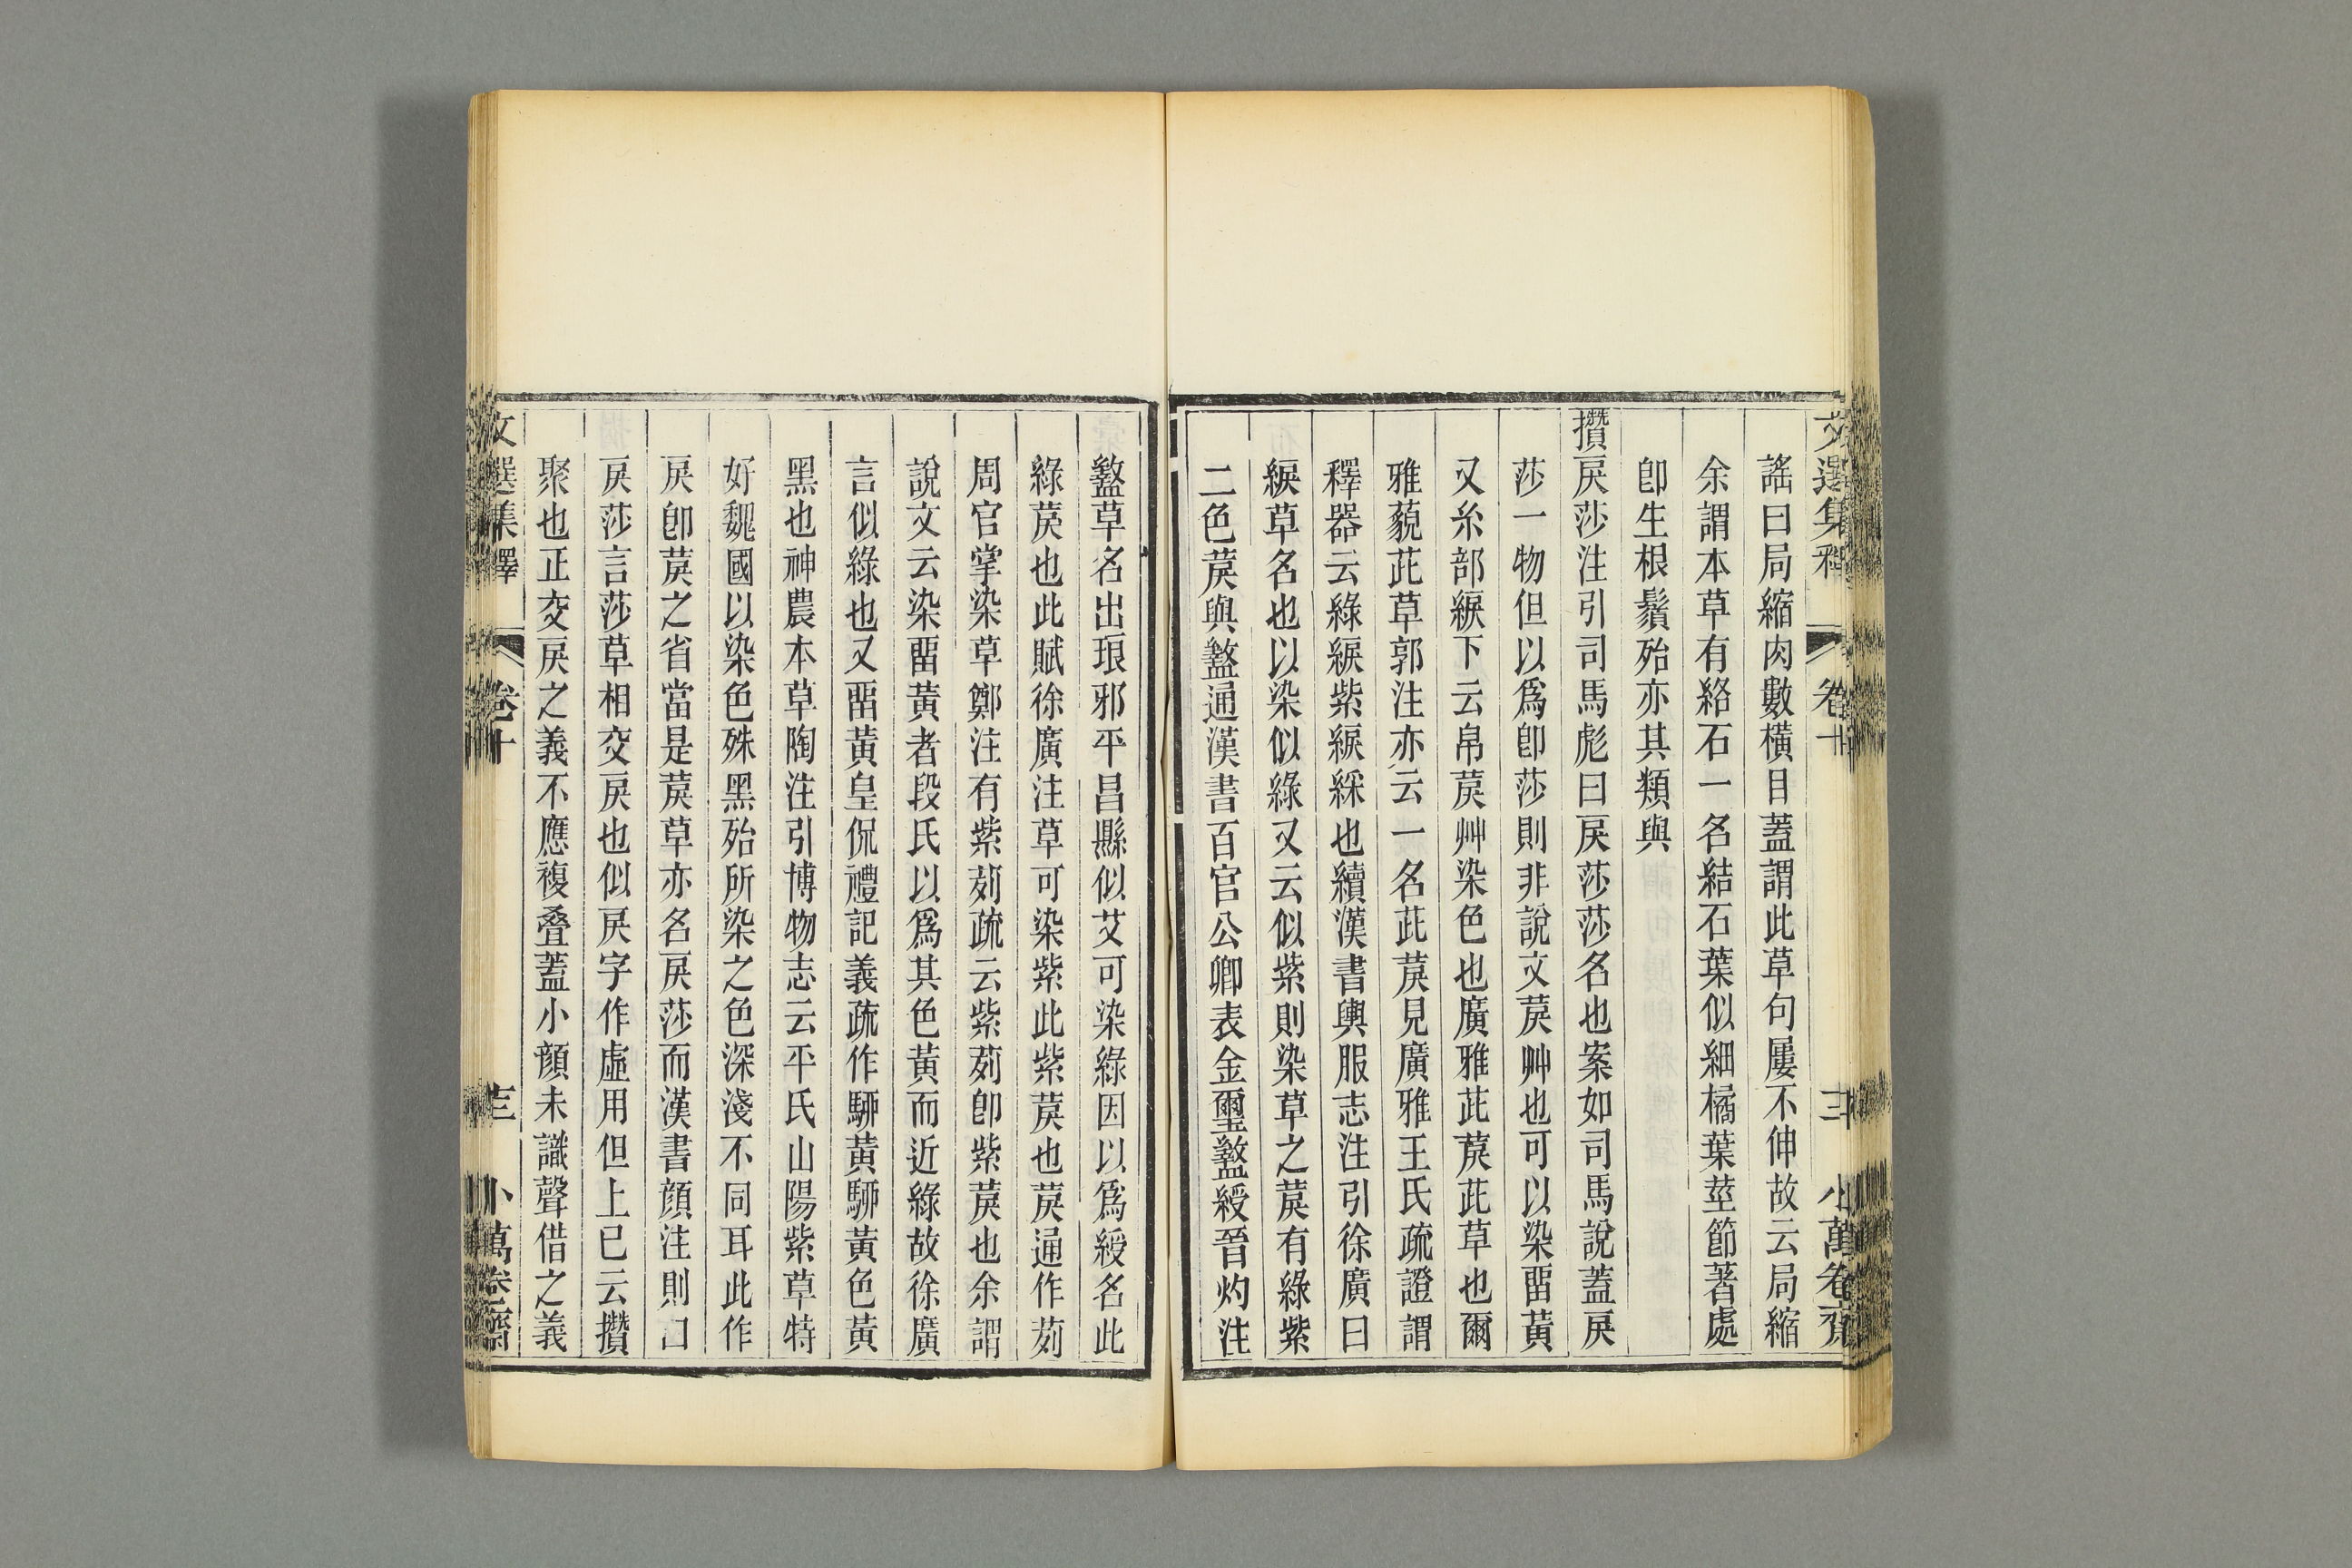 文選集釋 卷十 三十 小萬卷齋
謠曰局縮肉數橫目蓋謂此草句屢不伸故云局縮
余謂本草有絡石一名結石葉似細橘葉莖節著處
卽生根鬚殆亦其類與
攢戾莎注引司馬彪曰戾莎莎名也案如司馬說蓋戾
莎一物但以爲卽莎則非說文莀艸也可以染畱黃
又糸部綟下云帛莀艸染色也廣雅茈莀茈草也爾
雅藐茈草郭注亦云一名茈莀見廣雅王氏疏證謂
釋器云綠綟紫綟綵也續漢書輿服志注引徐廣曰
綟草名也以染似綠又云似紫則染草之莀有綠紫
二色莀與盭通漢書百官公卿表金璽盭綬晉灼注
盭草名出琅邪平昌縣似艾可染綠因以爲綬名此
綠莀也此賦徐廣注草可染紫此紫莀也莀通作茢
周官掌染草鄭注有紫茢疏云紫茢卽紫莀也余謂
說文云染畱黃者段氏以爲其色黃而近綠故徐廣
言似綠也又畱黃皇侃禮記義疏作駵黃駵黃色黃
黑也神農本草陶注引博物志云平氏山陽紫草特
好魏國以染色殊黑殆所染之色深淺不同耳此作
戾卽莀之省當是莀草亦名戾莎而漢書顏注則曰
戾莎言莎草相交戾也似戾字作虛用但上已云攢
聚也正交戾之義不應複叠蓋小顏未識聲借之義
文選集釋 卷十 三 小萬卷齋